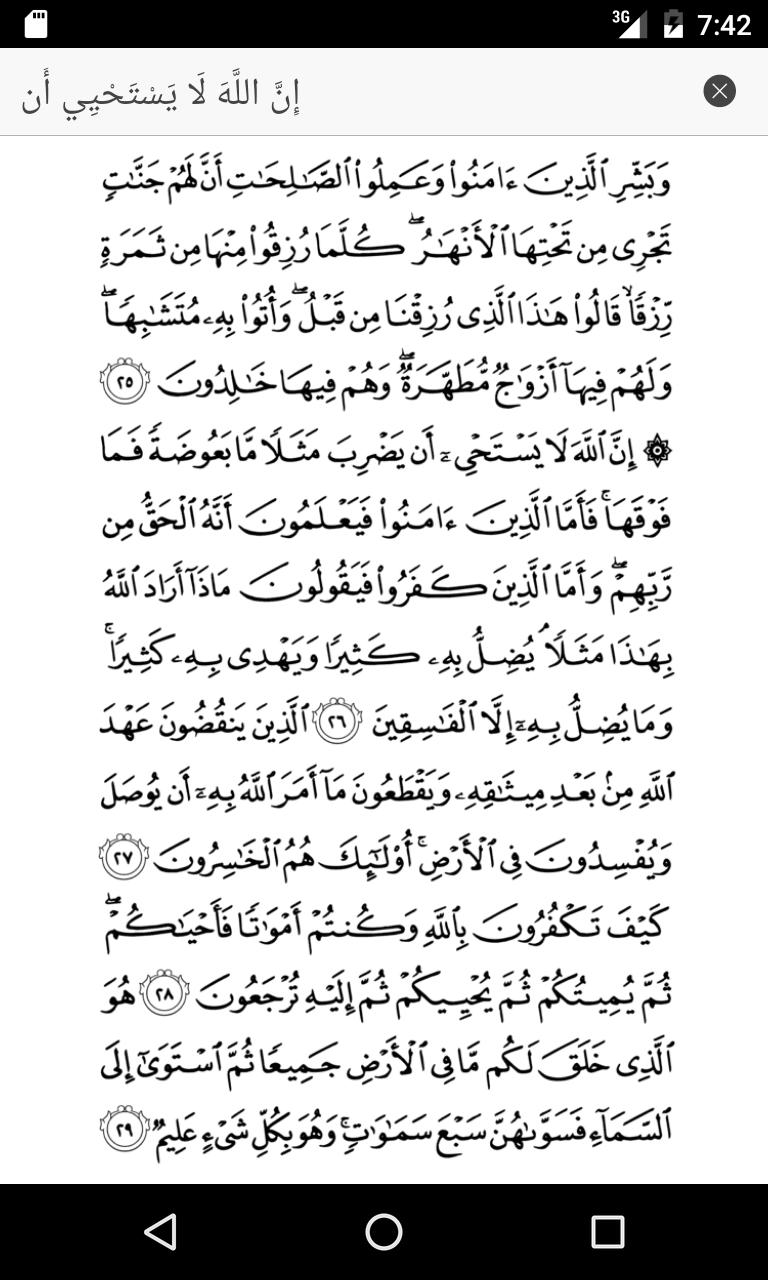 3G 7:42
إِنَّ اللَّهَ لَا يَسْتَحْيِي أَن
وَبَشِّرِ ٱلَّذِينَ ءَامَنُوا۟ وَعَمِلُوا۟ ٱلصَّـٰلِحَـٰتِ أَنَّ لَهُمْ جَنَّـٰتٍ
تَجْرِى مِن تَحْتِهَا ٱلْأَنْهَـٰرُ ۖ كُلَّمَا رُزِقُوا۟ مِنْهَا مِن ثَمَرَةٍ
رِّزْقًا ۙ قَالُوا۟ هَـٰذَا ٱلَّذِى رُزِقْنَا مِن قَبْلُ ۖ وَأُتُوا۟ بِهِۦ مُتَشَـٰبِهًا ۖ
وَلَهُمْ فِيهَآ أَزْوَٰجٌ مُّطَهَّرَةٌ ۖ وَهُمْ فِيهَا خَـٰلِدُونَ ٢٥
۞ إِنَّ ٱللَّهَ لَا يَسْتَحْىِۦٓ أَن يَضْرِبَ مَثَلًا مَّا بَعُوضَةً فَمَا
فَوْقَهَا ۚ فَأَمَّا ٱلَّذِينَ ءَامَنُوا۟ فَيَعْلَمُونَ أَنَّهُ ٱلْحَقُّ مِن
رَّبِّهِمْ ۖ وَأَمَّا ٱلَّذِينَ كَفَرُوا۟ فَيَقُولُونَ مَاذَآ أَرَادَ ٱللَّهُ
بِهَـٰذَا مَثَلًا ۘ يُضِلُّ بِهِۦ كَثِيرًا وَيَهْدِى بِهِۦ كَثِيرًا ۚ
وَمَا يُضِلُّ بِهِۦٓ إِلَّا ٱلْفَـٰسِقِينَ ٢٦ ٱلَّذِينَ يَنقُضُونَ عَهْدَ
ٱللَّهِ مِنۢ بَعْدِ مِيثَـٰقِهِۦ وَيَقْطَعُونَ مَآ أَمَرَ ٱللَّهُ بِهِۦٓ أَن يُوصَلَ
وَيُفْسِدُونَ فِى ٱلْأَرْضِ ۚ أُو۟لَـٰٓئِكَ هُمُ ٱلْخَـٰسِرُونَ ٢٧
كَيْفَ تَكْفُرُونَ بِٱللَّهِ وَكُنتُمْ أَمْوَٰتًا فَأَحْيَـٰكُمْ ۖ
ثُمَّ يُمِيتُكُمْ ثُمَّ يُحْيِيكُمْ ثُمَّ إِلَيْهِ تُرْجَعُونَ ٢٨ هُوَ
ٱلَّذِى خَلَقَ لَكُم مَّا فِى ٱلْأَرْضِ جَمِيعًا ثُمَّ ٱسْتَوَىٰٓ إِلَى
ٱلسَّمَآءِ فَسَوَّىٰهُنَّ سَبْعَ سَمَـٰوَٰتٍ ۚ وَهُوَ بِكُلِّ شَىْءٍ عَلِيمٌ ٢٩